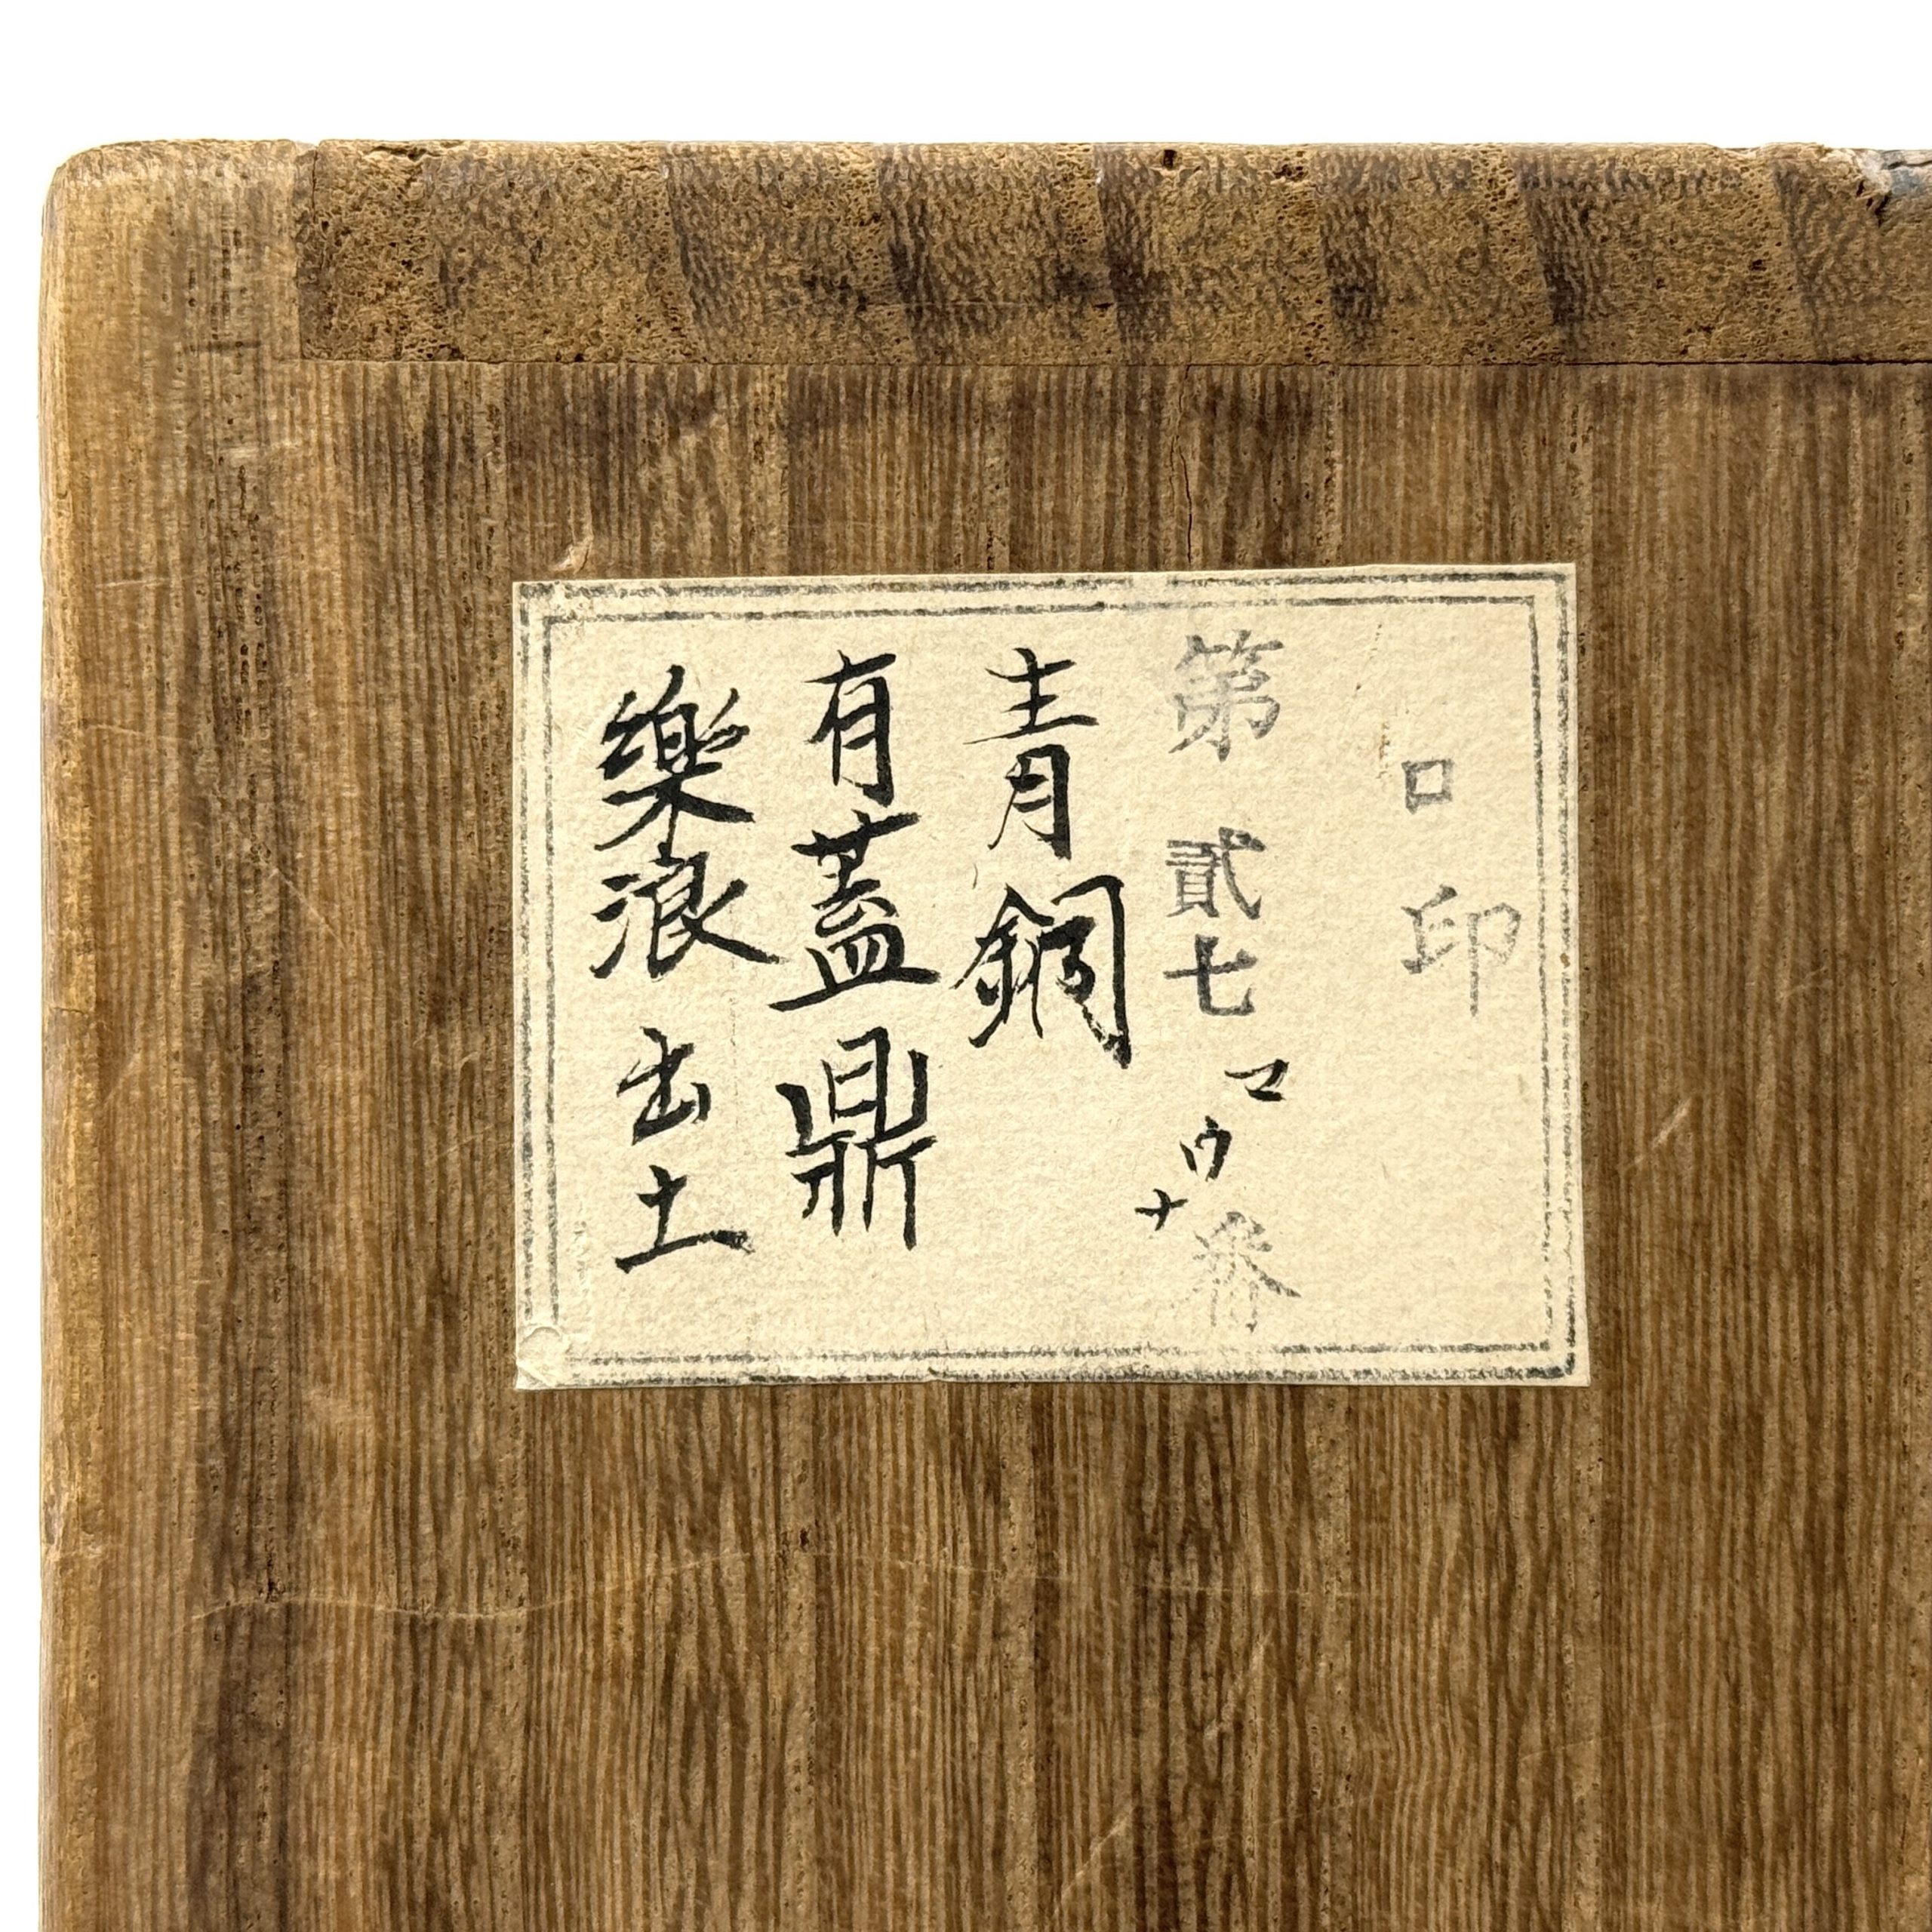 口印
第貳七マウナ番
青銅
有蓋鼎
樂浪出土